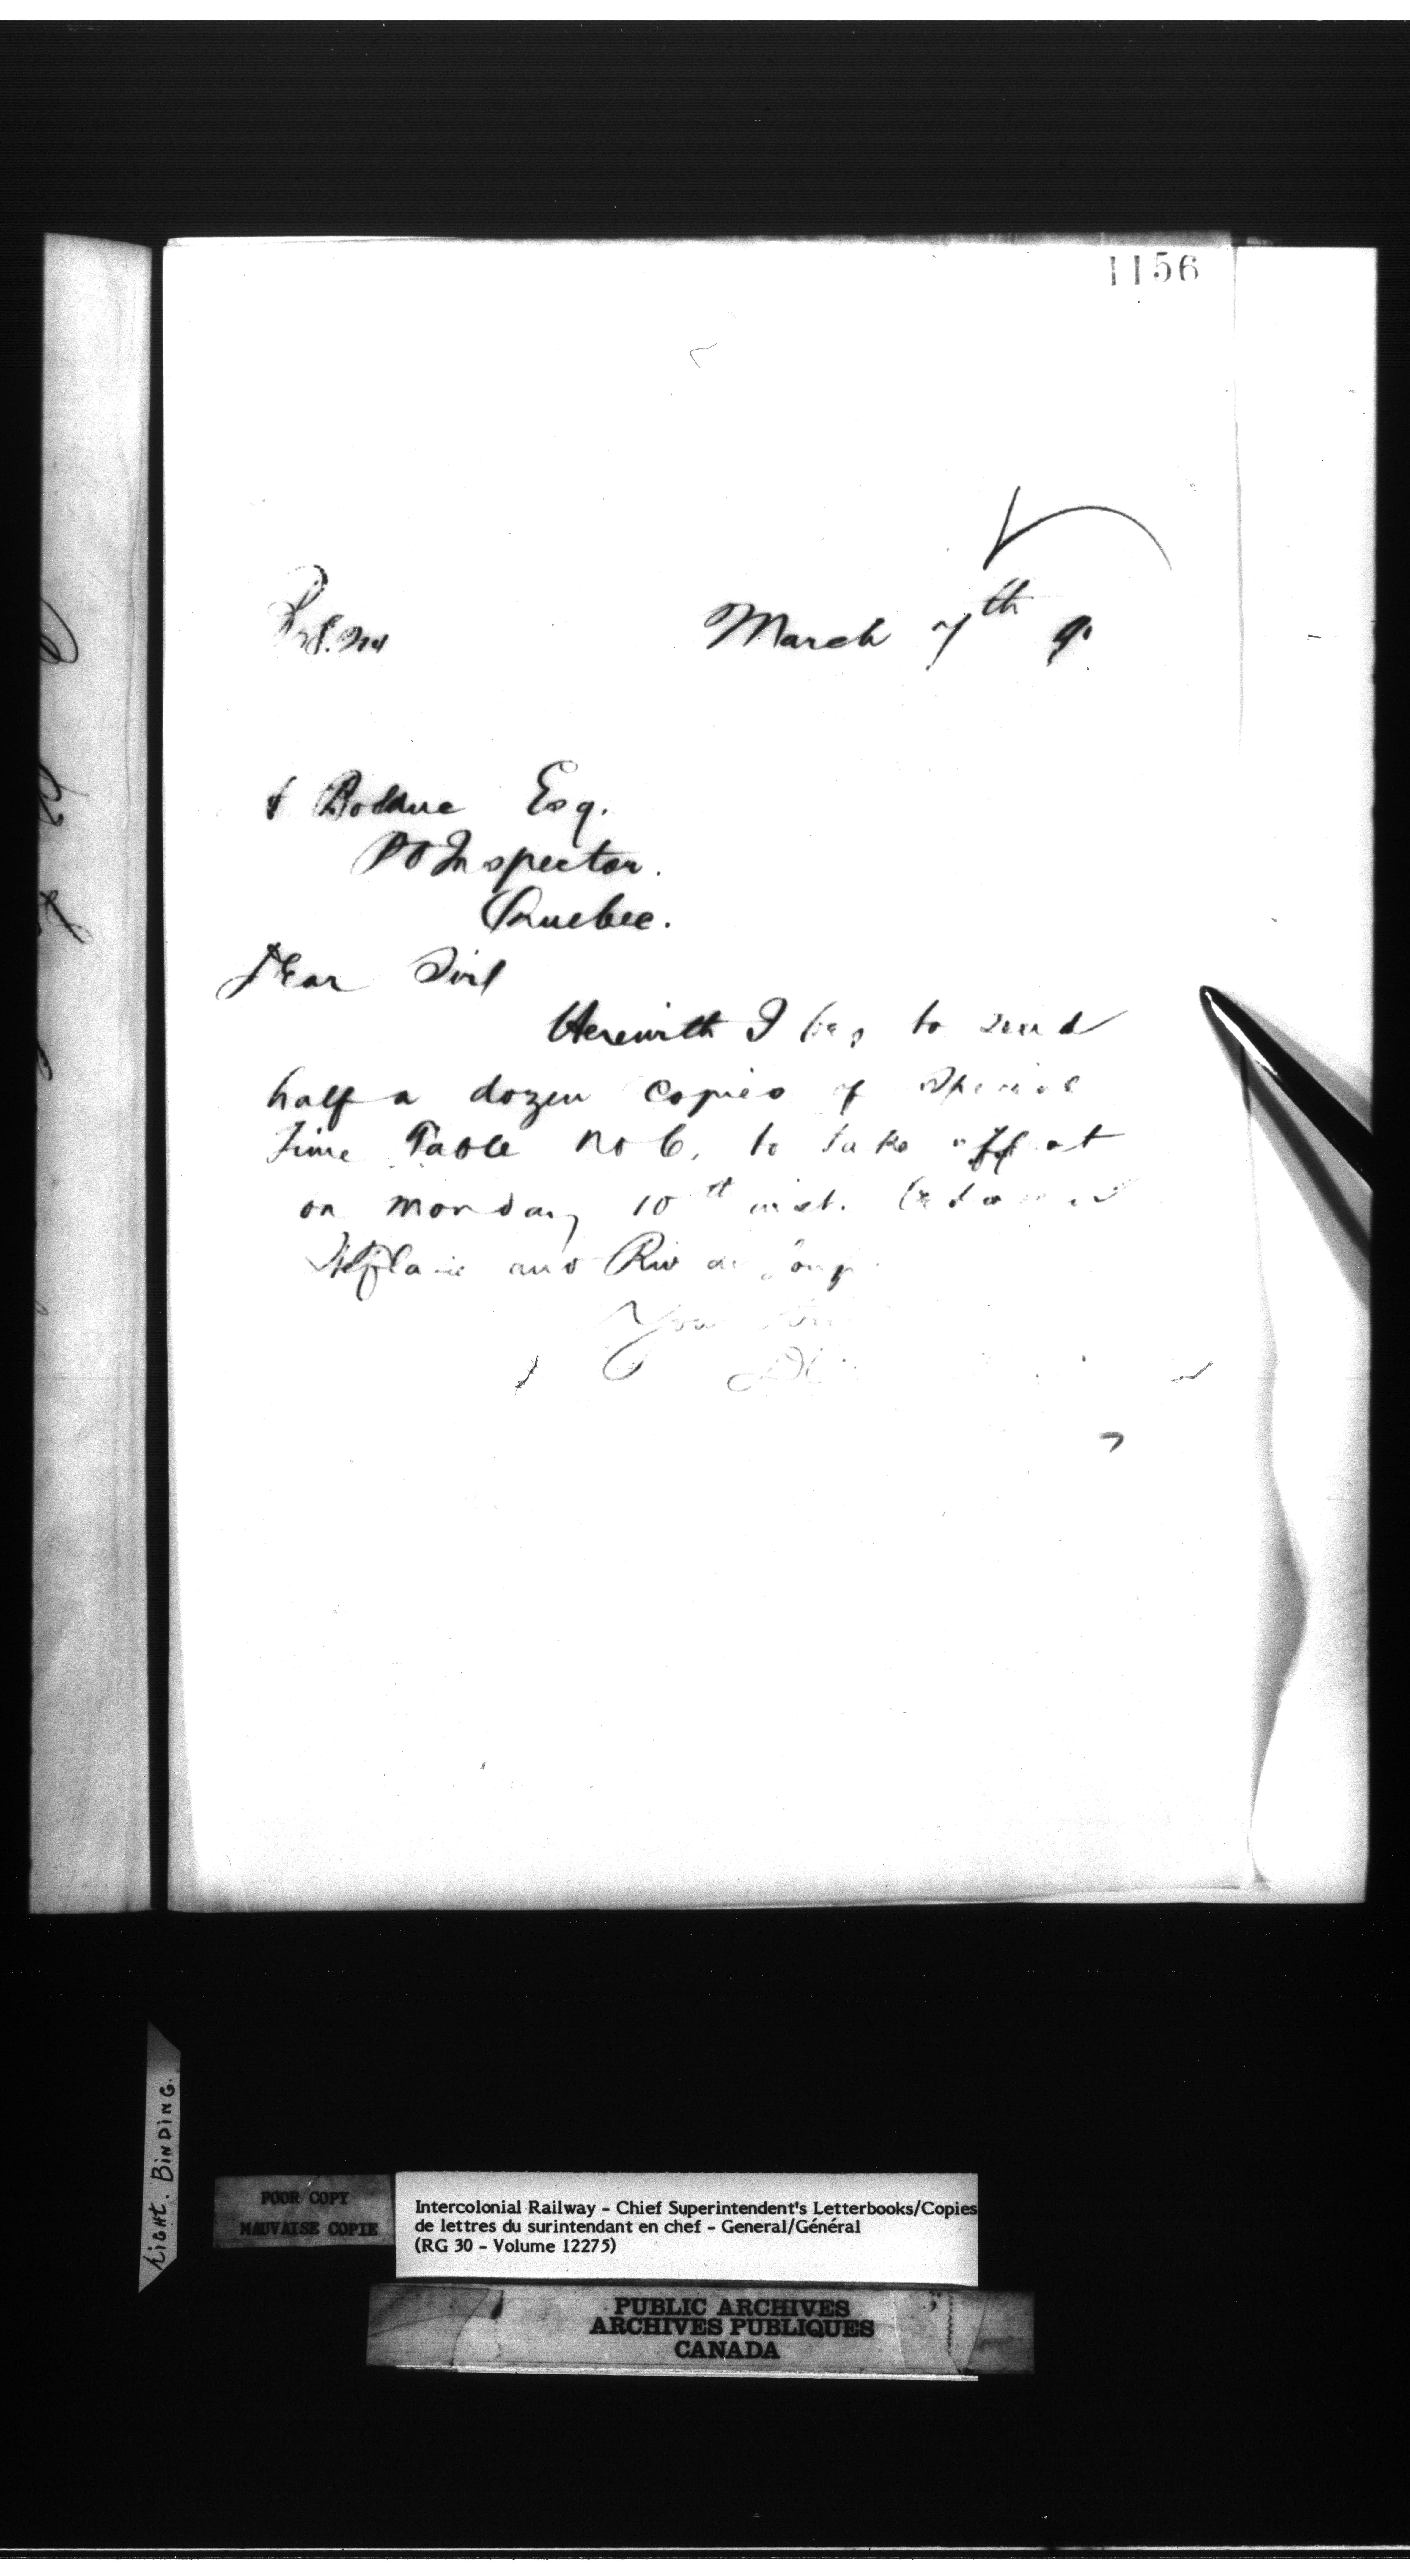 1156
March 7th 9.
Bolduc Esq.
P O Inspector.
Quebec.
Dear Sir
Herewith I beg to send
half a dozen copies of Special
Time Table No 6, to take effect
on Monday 10th inst. between
and
Your
Tight. Binding.
POOR COPY
MAUVAISE COPIE
Intercolonial Railway - Chief Superintendent's Letterbooks/Copies
de lettres du surintendant en chef - General/Général
(RG 30 - Volume 12275)
PUBLIC ARCHIVES
ARCHIVES PUBLIQUES
CANADA